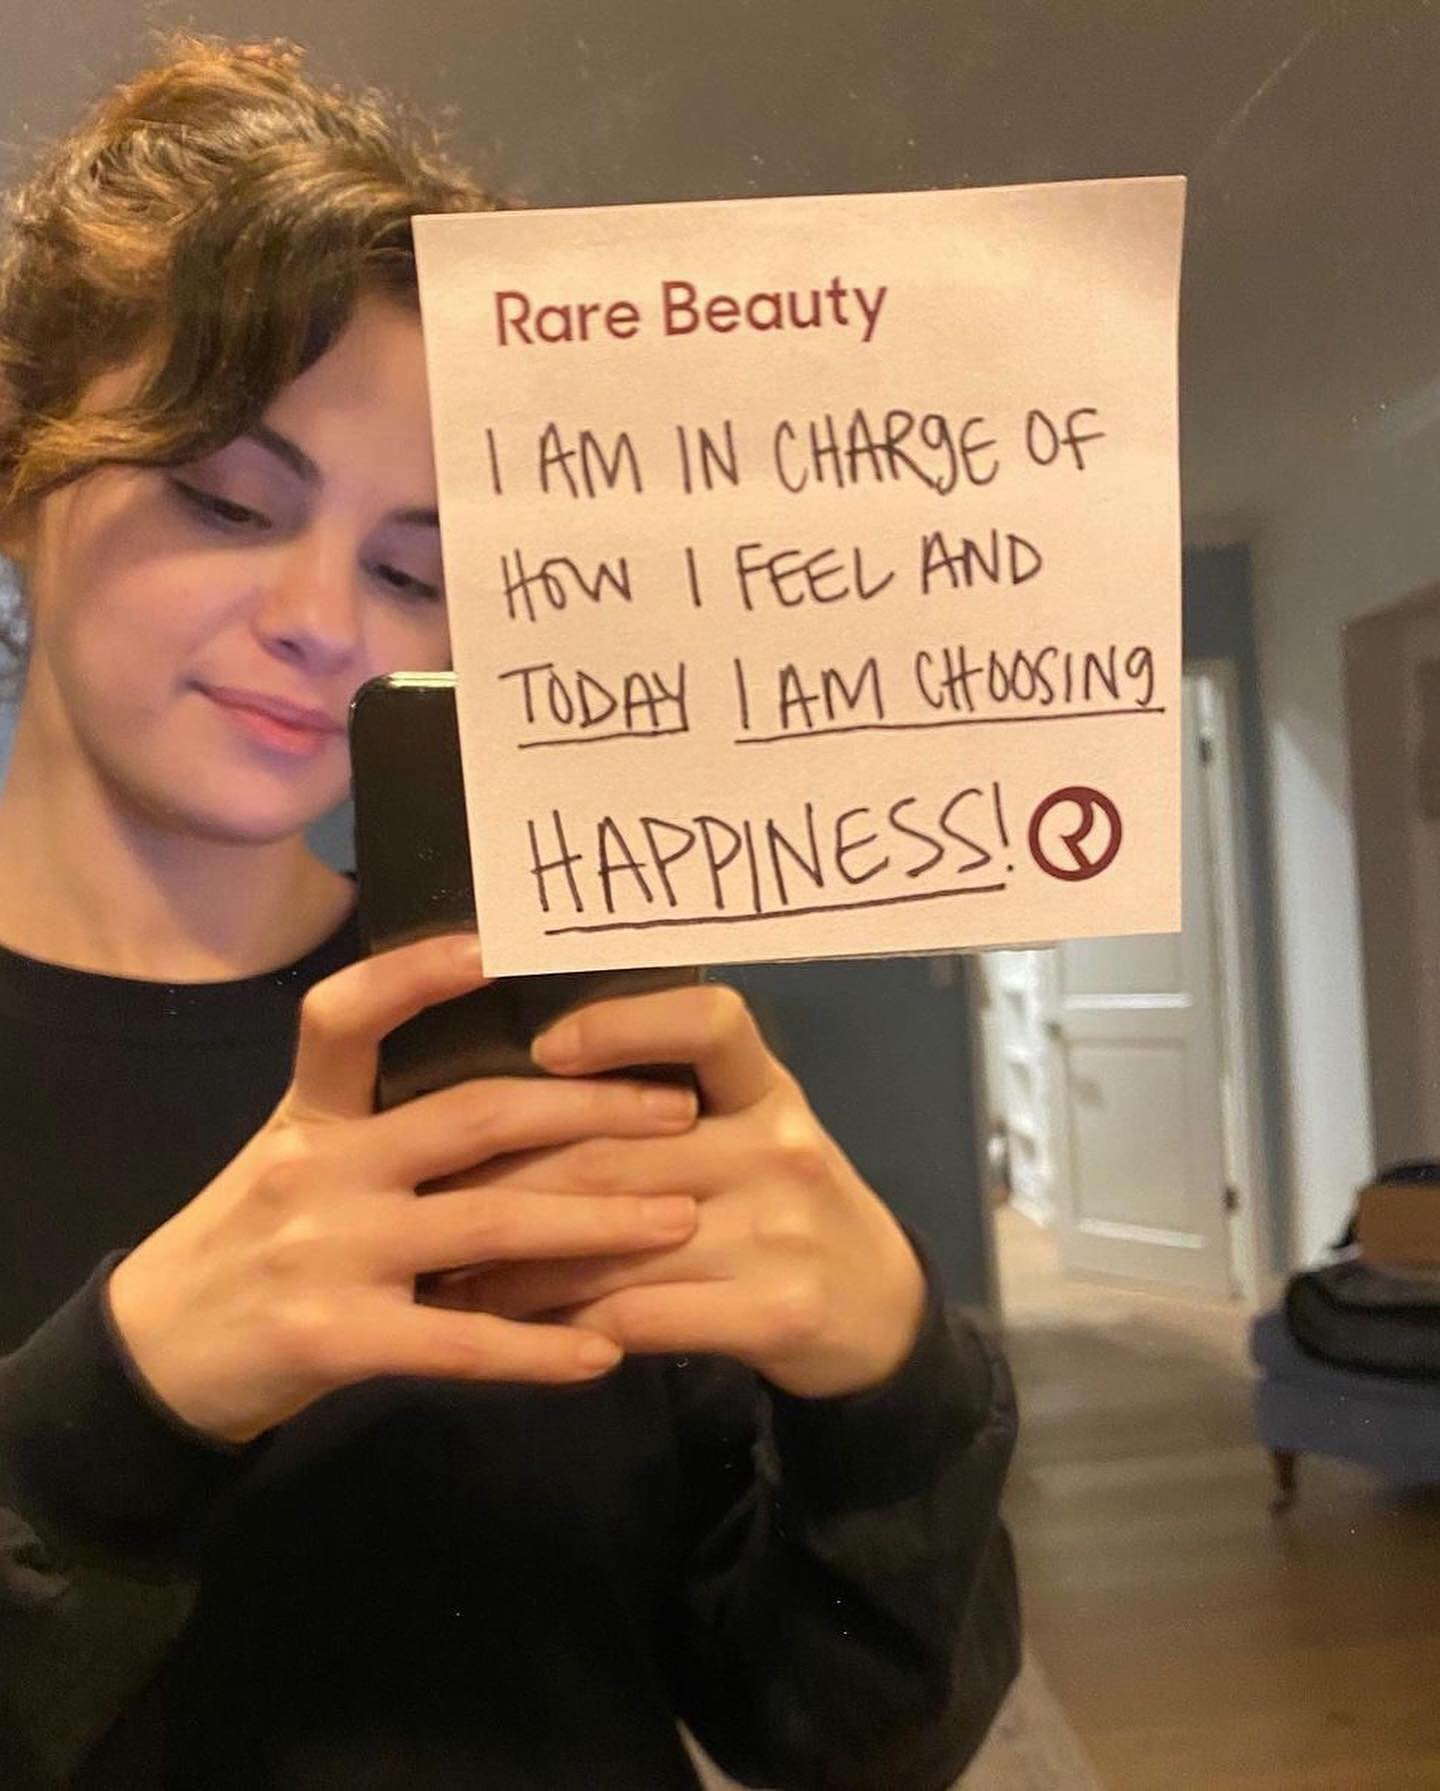 Rare Beauty
I AM IN CHARgE OF
HOW I FEEL AND
TODAY I AM CHOOSINg
HAPPINESS!